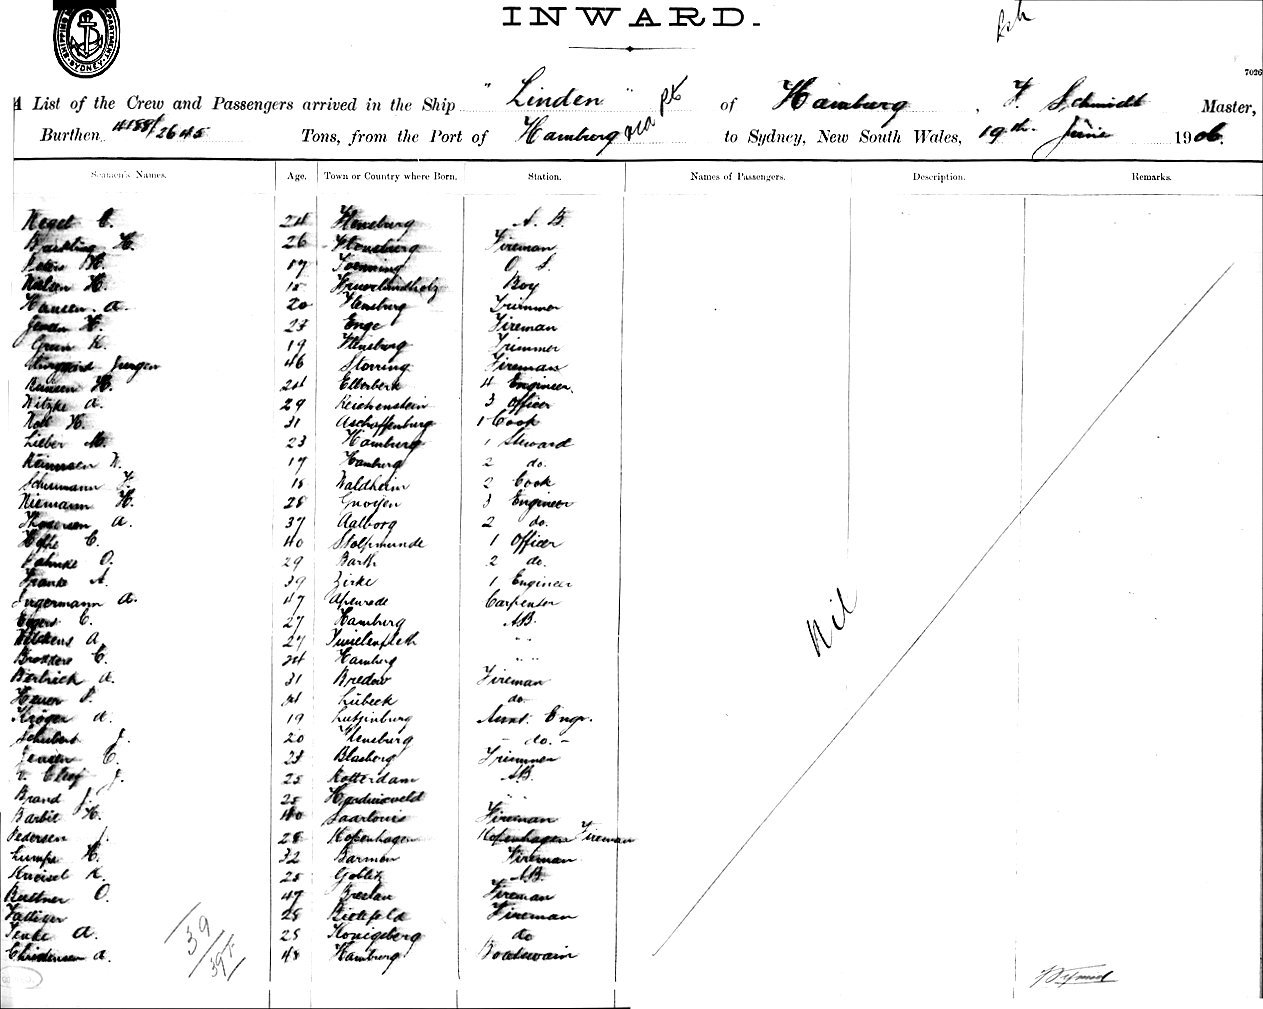 SHIPPING DEPARTMENT SYDNEY
INWARD.
7026
A List of the Crew and Passengers arrived in the Ship "Linden" of Hamburg, F. Schmidt Master,
Burthen 4158/2645 Tons, from the Port of Hamburg via pt to Sydney, New South Wales, 19th June 1906.
Seamen's Names. Age. Town or Country where Born. Station. Names of Passengers. Description. Remarks.
Kegel C. 24 Flensburg A. B.
Barkling H. 26 Flensburg Fireman
Peters H. 17 Toenning O. S.
Nielsen H. 18 Boy
Hansen. A. 20 Flensburg Trimmer
Jensen H. 23 Enge Fireman
Grun K. 19 Flensburg Trimmer
Jurgen 46 Fireman
Hansen H. 24 Ellerbeck 4 Engineer.
Witzke A. 29 Reichenstein 3 Officer
Noll H. 31 Aschaffenburg 1 Cook
Lieber M. 23 Hamburg 1 Steward
17 Hamburg 2 do.
Schumann F. 18 Waldheim 2 Cook
Niemann H. 28 Gnoyen 3 Engineer
Thogersen A. 37 Aalborg 2 do.
C. 40 Stolpmunde 1 Officer
Pahnke O. 29 Barth 2 do.
Franke A. 39 Zirke 1 Engineer
Ingermann A. 47 Apenrade Carpenter
Eggers C. 27 Hamburg AB.
Wilckens A. 27 Twielenfleth " "
C. 24 Hamburg " "
A. 31 Bredow Fireman
Heuer P. Lübeck do
Kröger A. 19 Lutjinburg Asst. Engr.
Schubert J. 20 Flensburg - do. -
Jensen C. 23 Blasberg Trimmer
v. Cleef J. 25 Rotterdam AB.
Brand J. 25 " "
Barbie H. 40 Saarlouis Fireman
Pedersen J. 28 Kopenhagen Kopenhagen Fireman
Lumpe H. 32 Barmen Fireman
Kneisel K. 25 AB.
Buttner O. 47 Breslau Fireman
28 Bielefeld Fireman
A. 28 Konigsberg do
Christensen A. 48 Hamburg Boatswain
Nil
39